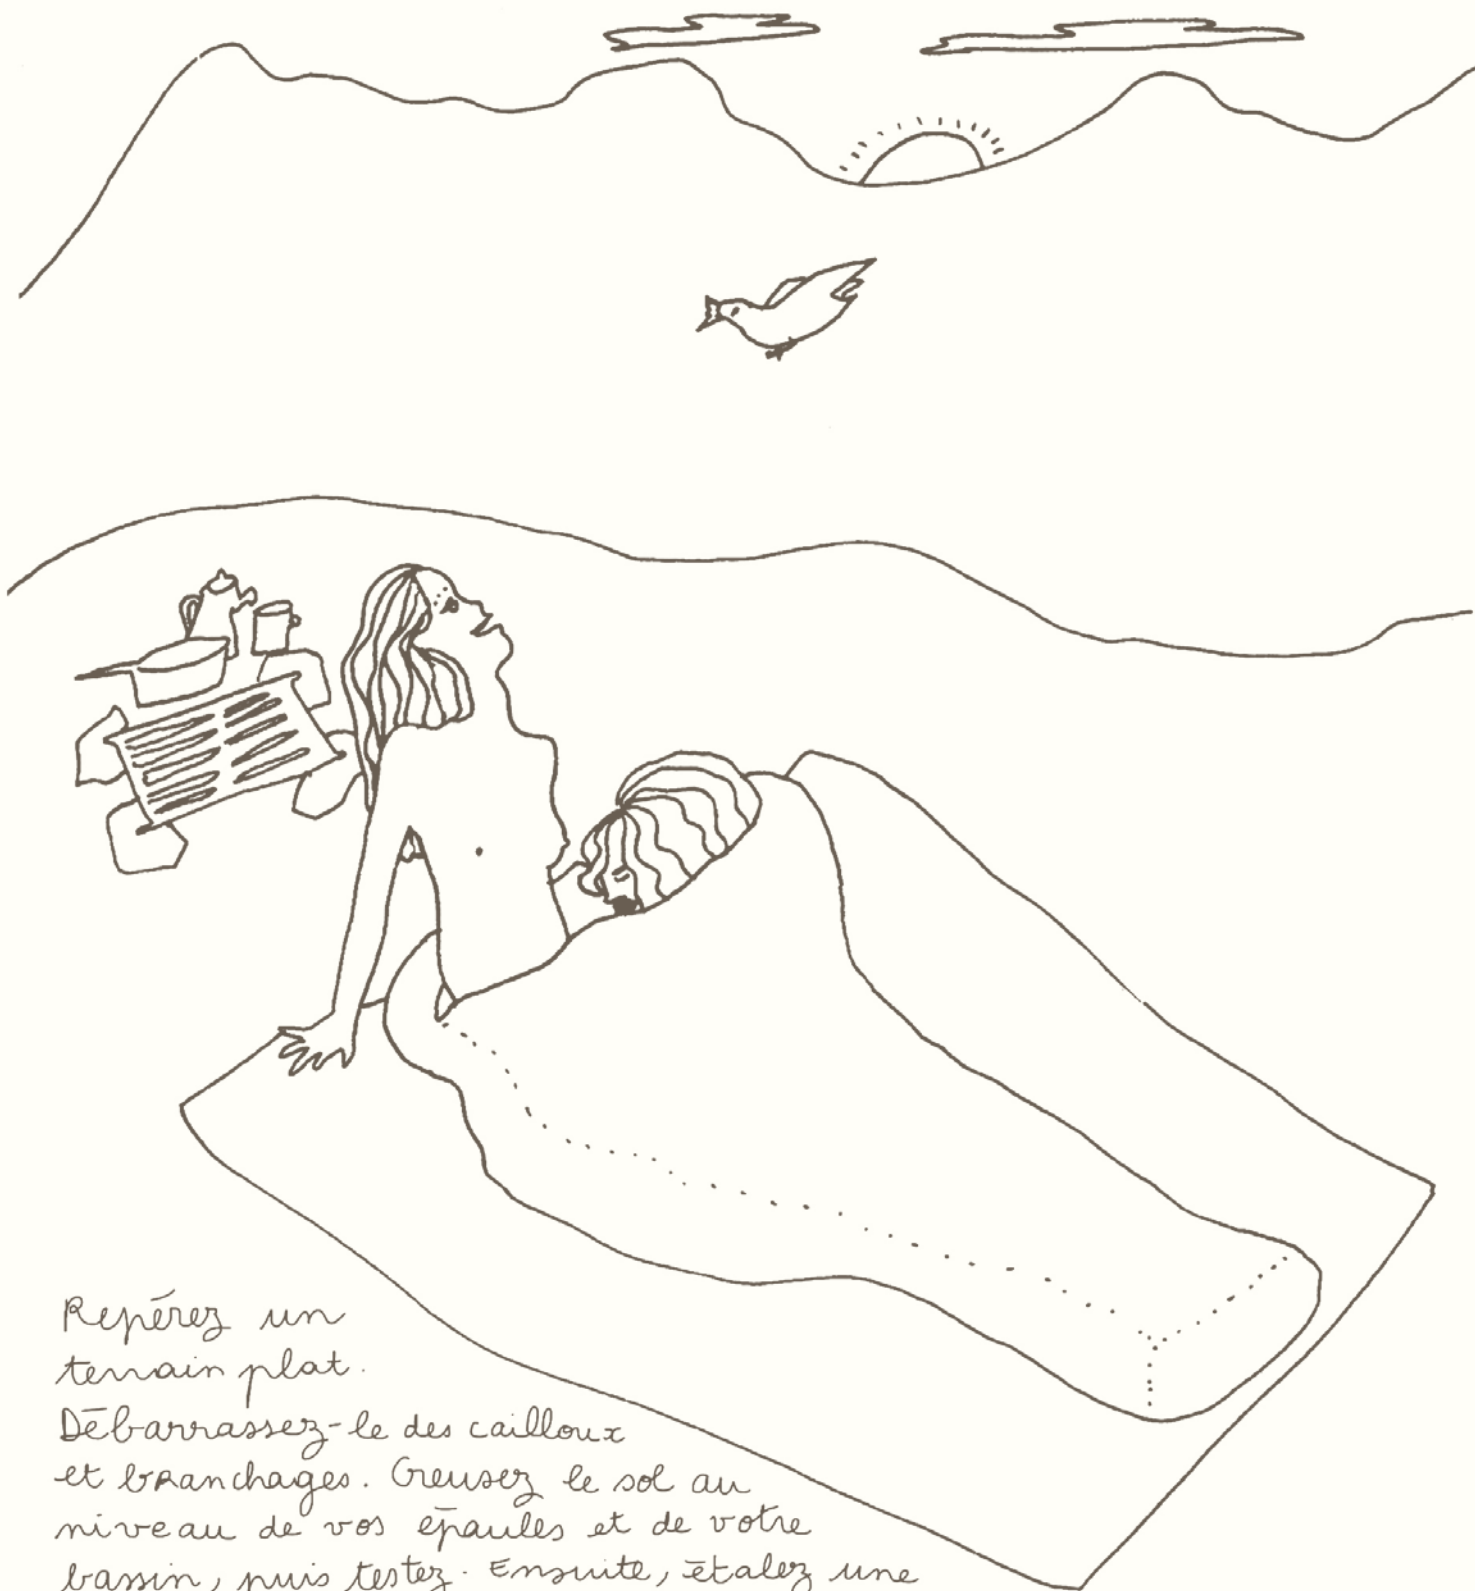 Repérez un
terrain plat.
Débarrassez-le des cailloux
et branchages. Creusez le sol au
niveau de vos épaules et de votre
bassin, puis testez. Ensuite, étalez une